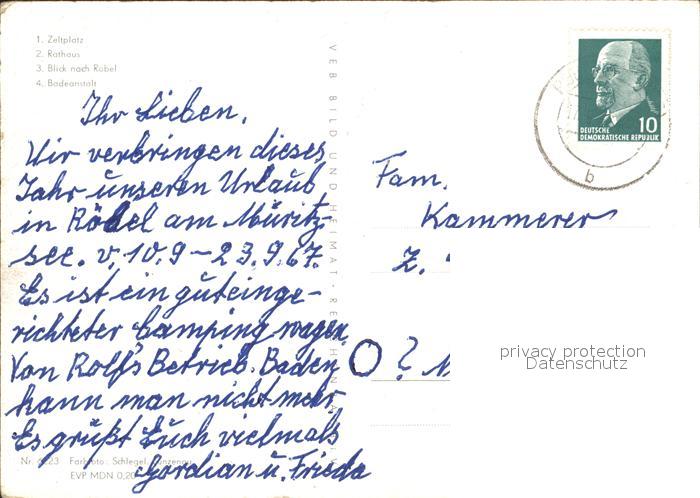 1. Zeltplatz
2. Rathaus
3. Blick nach Röbel
4. Badeanstalt
Ihr Lieben,
Wir verbringen dieses
Jahr unseren Urlaub
in Röbel am Müritz-
see. v. 10.9 – 23.9.67.
Es ist ein guteinge-
richteter Campingwagen
Von Rolf's Betrieb. Baden
kann man nicht mehr
Es grüßt Euch vielmals
Gordian u. Frieda
Farbfoto: Schlegel,
EVP MDN 0,20
VEB BILD UND HEIMAT · REICHENBACH
10
DEUTSCHE
DEMOKRATISCHE REPUBLIK
b
Fam.
Kammerer
Z.
O ?
privacy protection
Datenschutz